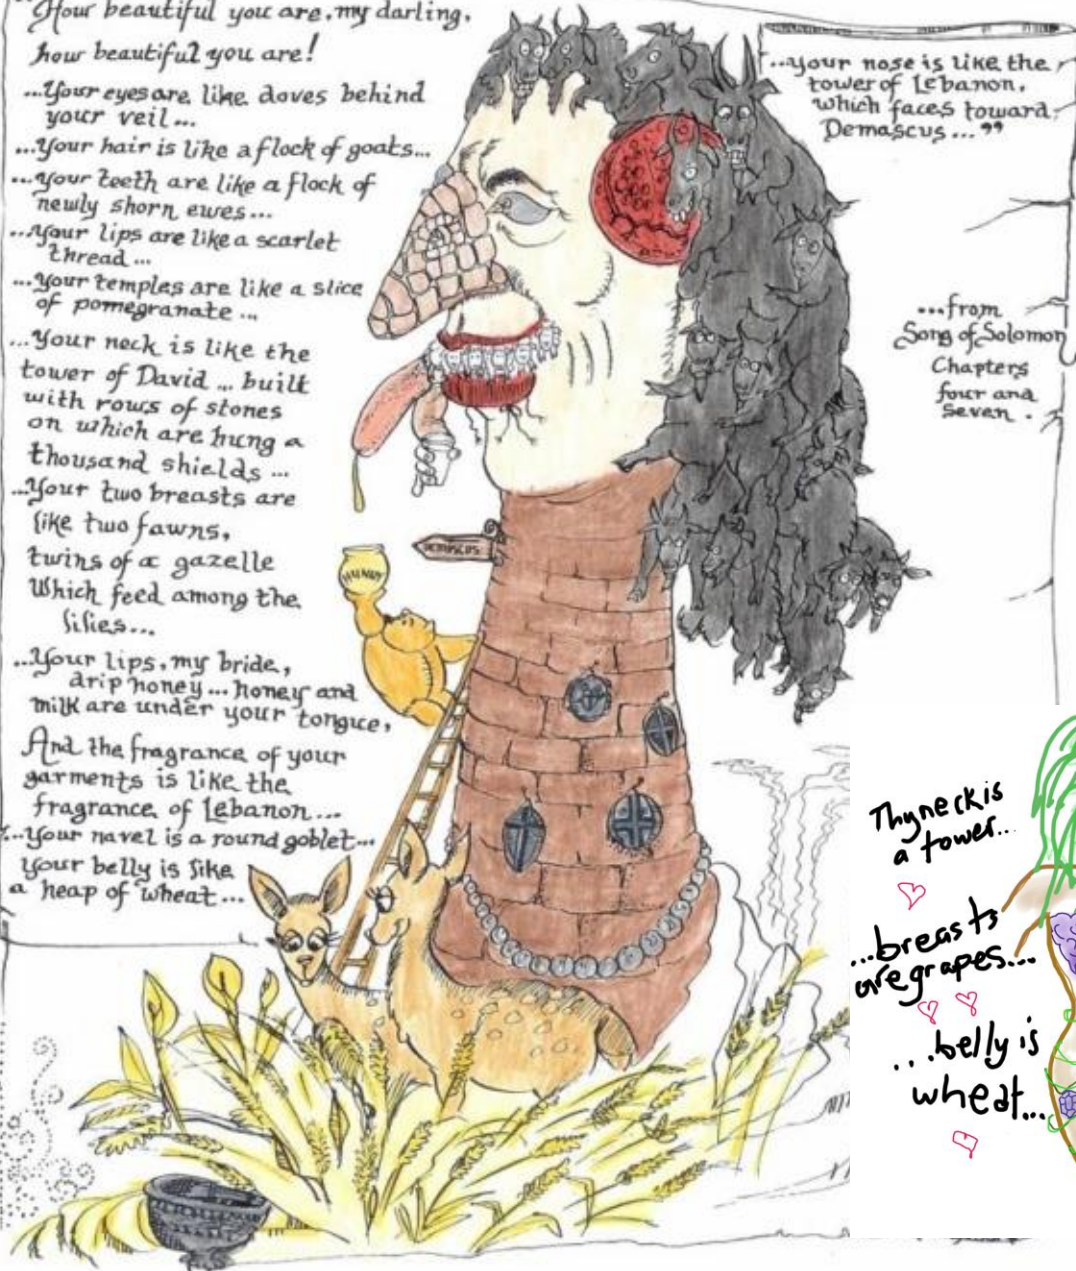 "How beautiful you are, my darling,
how beautiful you are!
...Your eyes are like doves behind
your veil...
...Your hair is like a flock of goats...
...Your teeth are like a flock of
newly shorn ewes...
...Your lips are like a scarlet
thread...
...Your temples are like a slice
of pomegranate...
...Your neck is like the
tower of David... built
with rows of stones
on which are hung a
thousand shields...
...Your two breasts are
like two fawns,
twins of a gazelle
Which feed among the
lilies...
...Your lips, my bride,
drip honey... honey and
milk are under your tongue,
And the fragrance of your
garments is like the
fragrance of Lebanon...
...Your navel is a round goblet...
your belly is like
a heap of wheat...
...your nose is like the
tower of Lebanon,
which faces toward
Demascus..."
...from
Song of Solomon
Chapters
four and
seven.
DEMASCUS
HUNNY
Thy neck is
a tower...
...breasts
are grapes...
...belly is
wheat...